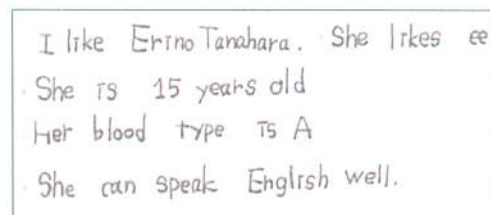 I like Erino Tanahara. She likes ee
She is 15 years old
Her blood type is A
She can speak English well.